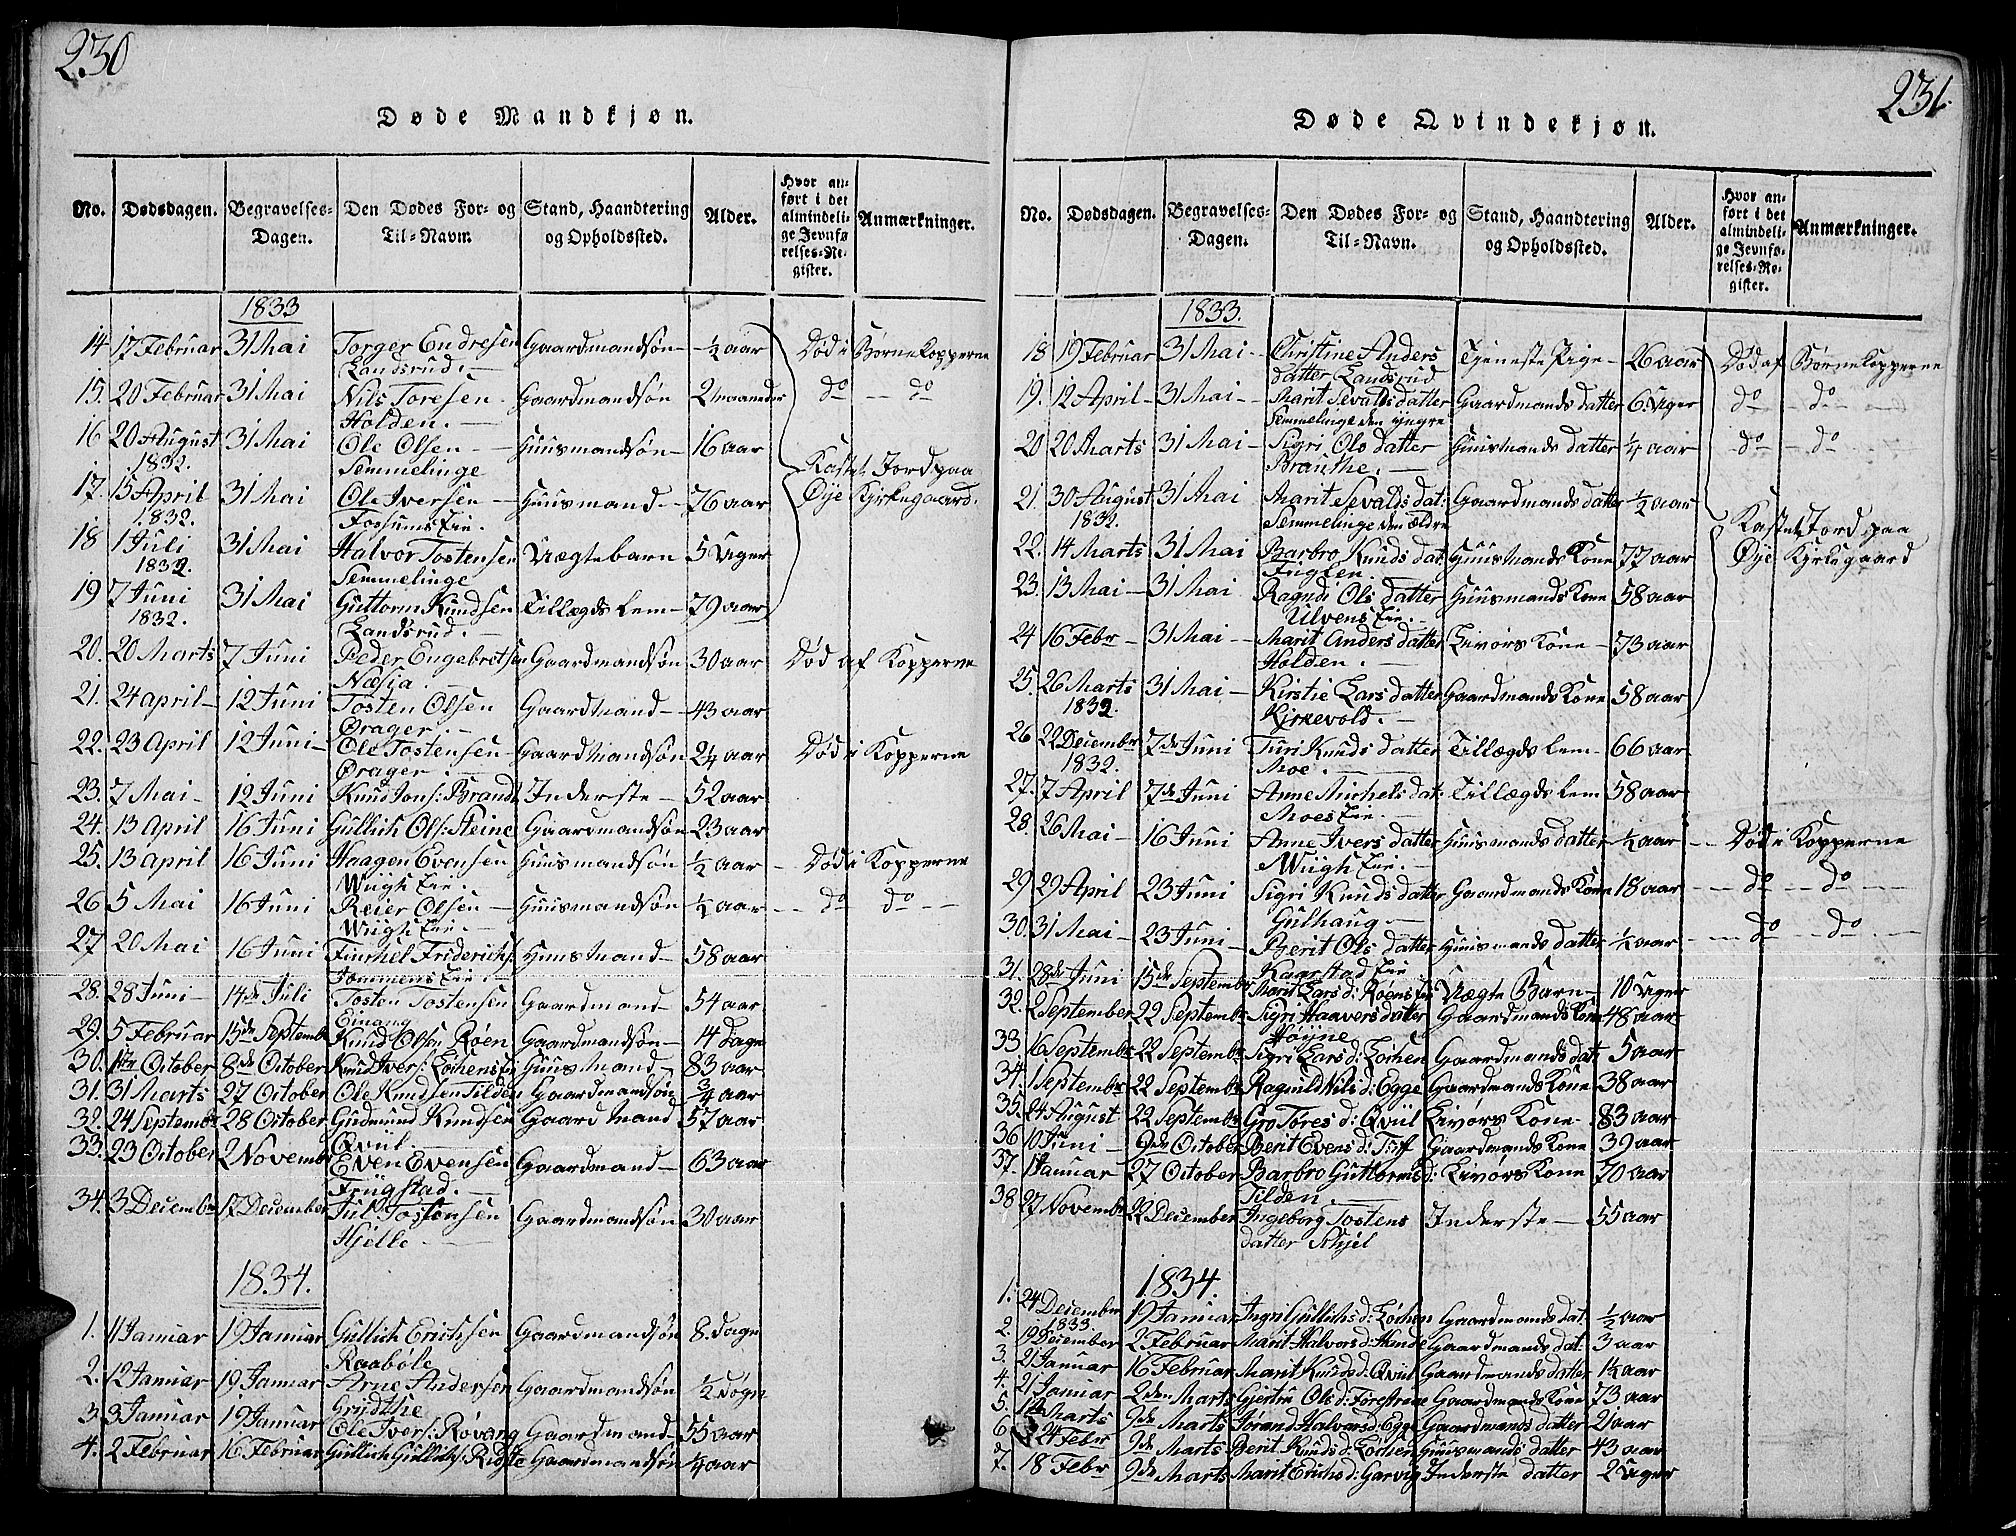 230
Døde Mandkjøn.
No. Dødsdagen. Begravelses-Dagen. Den Dødes For- og Til-Navn. Stand, Haandtering og Opholdssted. Alder. Hvor anført i det almindelige Jevnførelses-Register. Anmærkninger.
1833
14 17 Februar 31 Mai Torger Endresen Gaardmandsøn ½ aar Død i Børnekopperne
Landsrud.
15. 20 Februar 31 Mai Nils Toresen Gaardmandsøn 2 Maaneder do do
Holden.
16 20 August 31 Mai Ole Olsen Huusmandsøn 16 aar
1832. Semmelinge Kastet Jord paa
17. 15 April 31 Mai Ole Iversen Huusmand 76 aar Øye Kjrkegaard.
1832. Fossums Eie.
18 1 Juli 31 Mai Halvor Tostensen Uægtebarn 5 Uger
1832. Semmelinge
19 7 Juni 31 Mai Guttorm Knudsen Tillægdslem 79 aar
1832. Landsrud.
20. 20 Marts 7 Juni Peder Engebretsen Gaardmandsøn 30 aar Død af Kopperne
Næsja.
21. 24 april 12 Juni Tosten Olsen Gaardmand 43 aar
Ørager.
22. 23 April 12 Juni Ole Tostensen Gaardmandsøn 2¼ aar Død i Kopperne
Ørager
23. 7 Mai 12 Juni Knud Jons: Brandt Inderste 52 aar
24. 13 April 16 Juni Gullich Ols: Steine Gaardmandsøn 23 aar
25. 13 April 16 Juni Haagen Evensen Huusmandsøn ½ aar Død i Kopperne
Wiigh Eie.
26 5 Mai 16 Juni Reier Olsen Huusmandsøn ¼ aar do do
Wiigh Eie.
27 20 Mai 16 Juni Finchel Friderichs: Huusmand 58 aar
Tommens Eie.
28. 28 Juni 14de Juli Tosten Tostensen Gaardmand 54 aar
Einang
29. 5 Februar 15de Septembr Knud Olsen Røen Gaardmandsøn 14 Dage
30. 1ste October 8de October Knud Ivers: Lohens Eie Huusmand 83 aar
31. 31 Marts 27 October Ole Knudsen Tilden Gaardmandsøn ¾ aar
32. 24 Septembr 28 October Gudmund Knudsen Gaardmand 57 aar
Qviil
33. 23 October 2 Novembr Even Evensen Gaardmand 63 aar
Friigstad.
34. 3 Decembr 17 December Jul Tostensen Gaardmandsøn 30 aar
Hjelle
1834.
1. 11 Januar 19 Januar Gullich Erichsen Gaardmandsøn 8. Dage
Raabøle
2. 12 Januar 19 Januar Arne Andersen Gaardmandsøn ½ Døgn
Grydthe
3. 3 Januar 19 Januar Ole Ivers: Røvang Gaardmand 55 aar
4. 2 Februar 16 Februar Gullich Gullichs: Ridste Gaardmandsøn ¼ aar
231.
Døde Qvindekjøn.
No. Dødsdagen. Begravelses-Dagen. Den Dødes For- og Til-Navn. Stand, Haandtering og Opholdssted. Alder. Hvor anført i det almindelige Jevnførelses-Register. Anmærkninger.
1833.
18 19 Februar 31 Mai Christine Anders Tjeneste Pige 26 aar Død af Børnekopperne
datter Landsrud
19. 12 April 31 Mai Marit Sevaldsdatter Gaardmandsdatter 6 Uger do do
Semmelinge den yngre
20 20 Marts 31 Mai Sigri Olsdatter Huusmandsdatter ¼ aar do do
Branthe.
21. 30 August 31 Mai Marit Sevaldsdat: Gaardmandsdatter ½ aar
1832. Semmelinge den ældre Kastet Jord paa
22. 14 Marts 31 Mai Barbro Knudsdat: Huusmands Kone 77 aar Øye Kjrkegaard
23. 13 Mai 31 Mai Ragndi Olsdatter Huusmands Kone 58 aar
Ulvens Eie.
24 16 Febr 31 Mai Marit Andersdatter Livørs Kone 73 aar
Holden.
25. 26 Marts 31 Mai Kirstie Larsdatter Gaardmands Kone 58 aar
1832. Kjrkevold.
26 22 Decembr 7de Juni Turi Knudsdatter Tillægdslem 66 aar
1832. Moe.
27. 7 April 7de Juni Anne Michelsdat: Tillægdslem 58 aar
Moes Eie
28. 26 Mai 16 Juni Anne Iversdatter Huusmandsdatter ½ aar Død i Kopperne
Wiigh Eie
29 29 April 23 Juni Sigri Knudsdatter Gaardmands Kone 18 aar do do
Gulhaug
30. 31 Mai 23 Juni Berit Olsdatter Huusmandsdatter ½ aar do do
Kaarstad Eie
31. 28de Juni 15de Septembr Marit Larsd: Røens Eie Uægte Barn 10 Uger
32. 2 September 22 Septembr Sigri Haaversdatter Gaardmands Kone 48 aar
Høyne
33. 16 Septembr 22 Septembr Sigri Larsd: Lohen Gaardmandsdat: 5 aar
34. 1 Septembr 22 Septembr Ragnild Nilsd: Egge Gaardmands Kone 38 aar
35. 24 August 22 Septembr Gro Toresd: Qviil Livørs Kone 83 aar
36 10 Juni 9de October Berit Evensd: Toff Gaardmands Kone 39 aar
37. 1 Januar 27 October Barbro Guttormsd: Livørs Kone 70 aar
Tilden
38 27 Novembr 22 December Ingeborg Tostens Inderste 55 aar
datter Schjel
1834.
1. 24 December 19 Januar Ingri Gullichsd: Løchen Gaardmandsdat: ½ aar
1833.
2. 19 December 2 Februar Marit Halvorsd: Hande Gaardmandsdat: 3 aar
3. 21 Januar 16 Februar Marit Knudsd: Qviil Gaardmandsdatter 1¼ aar
4. 21 Januar 2den Marts Gjertru Olsd: Gaardmands Kone 73 aar
5. Marts 9de Marts Jorand Halvorsd: Egge Gaardmandsdatter 2 aar
6 24 Febr 9de Marts Berit Knudsd: Løchen Huusmandsdatter 43 aar
7. 18 Febr 9de Marts Marit Erichsd: Garvig Inderste datter 2 Uger